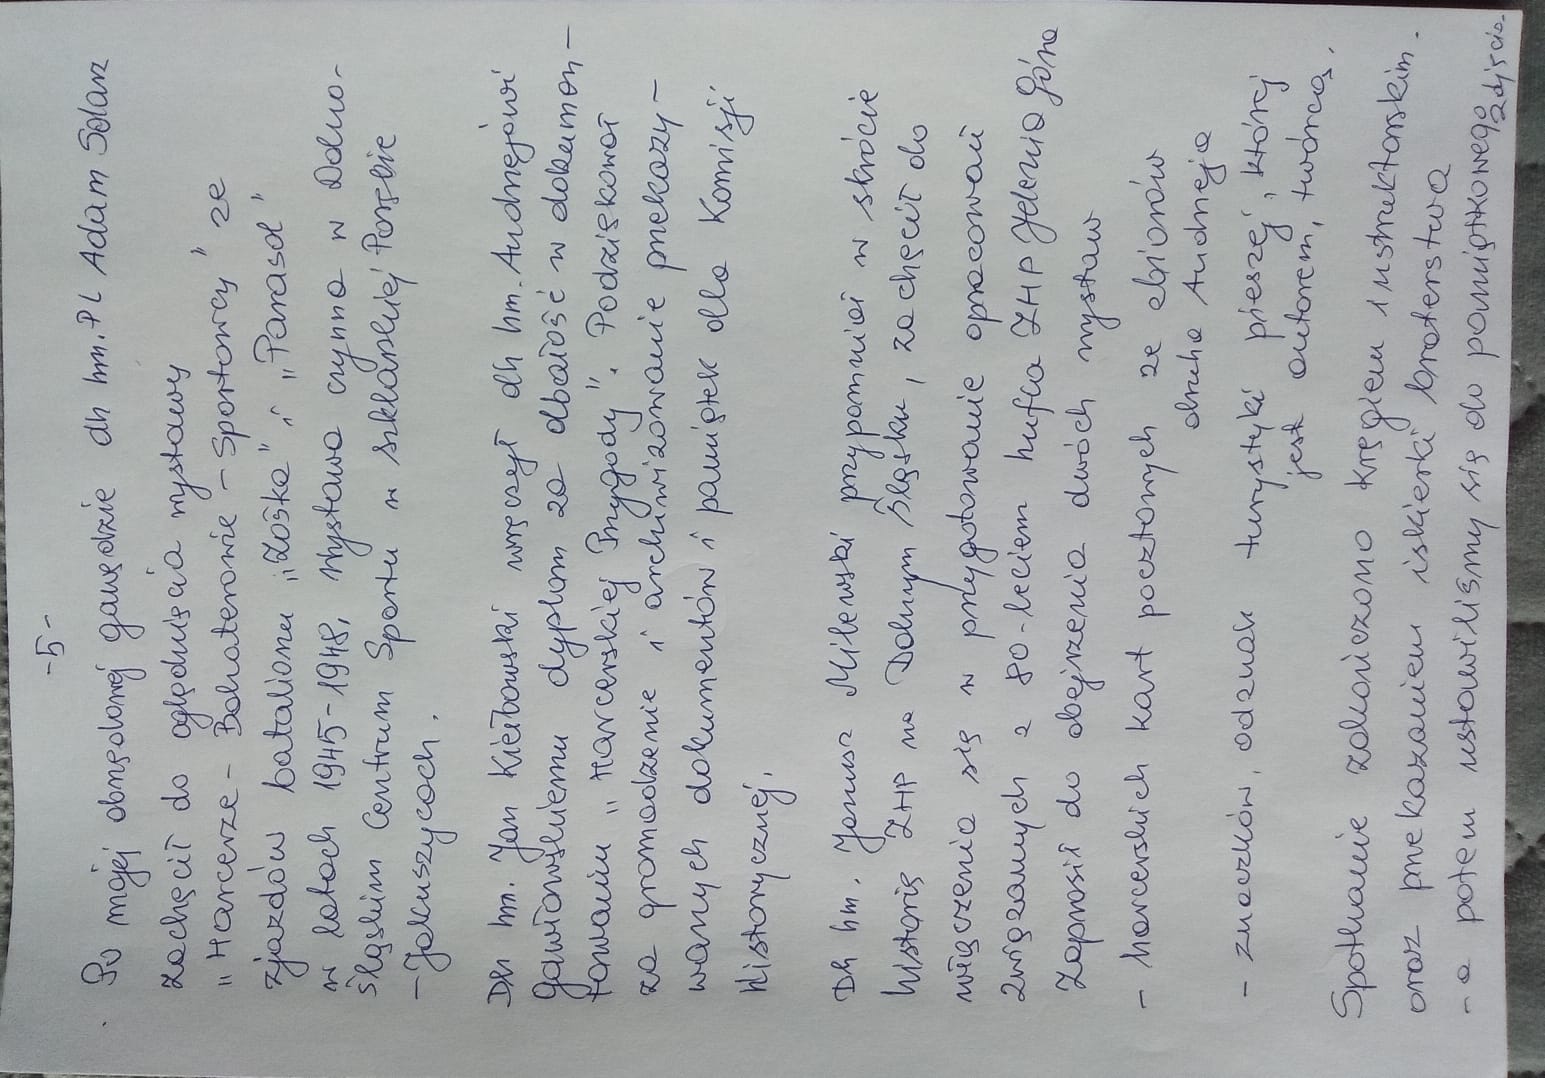 -5-
Po mojej obrzędowej gawędzie dh hm. PL Adam Solarz
zachęcił do oglądnięcia wystawy
"Harcerze - Bohaterowie - Sportowcy" ze
zjazdów batalionu "Zośka" i "Parasol"
w latach 1945-1948, Wystawa czynna w Dolno-
śląskim Centrum Sportu w szklarskiej Porębie
- Jakuszycach.
Dh hm. Jan Kiełbowski wręczył dh hm. Andrzejowi
Gawłowskiemu dyplom za dbałość w dokumen-
towaniu "Harcerskiej Przygody". Podziękował
za gromadzenie i archiwizowanie przekazy-
wanych dokumentów i pamiątek dla Komisji
Historycznej.
Dh hm. Janusz Milewski przypomniał w skrócie
historię ZHP na Dolnym Śląsku, zachęcił do
włączenia się w przygotowanie opracowań
związanych z 80-leciem hufca ZHP Jelenia Góra
Zaprosił do obejrzenia dwóch wystaw
- harcerskich kart pocztowych ze zbiorów
druha Andrzeja
- znaczków, odznak turystyki pieszej, której
jest autorem, twórcą.
Spotkanie zakończono kręgiem instruktorskim.
oraz przekazaniem iskierki braterstwa
- a potem ustawiliśmy się do pamiątkowego
zdjęcia.